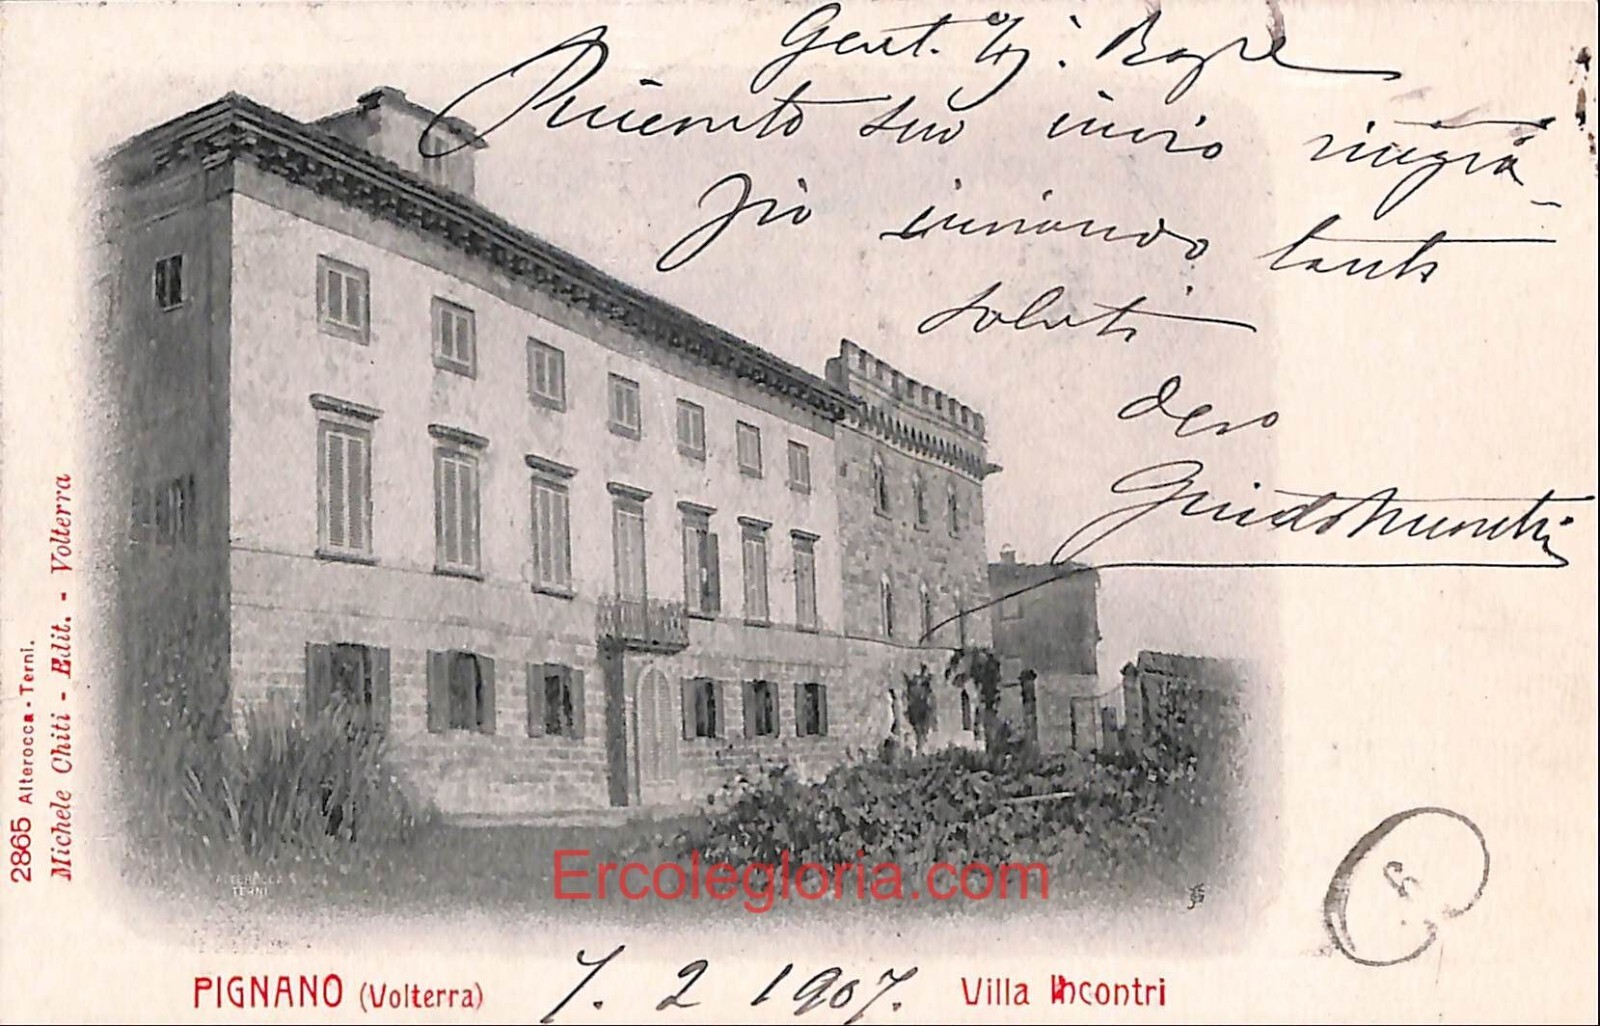 Gent. Sig:
Ricevuto suo invio ringra-
zio inviando tanti
saluti
devo
Guido
2865 Alterocca - Terni.
Michele Chiti - Edit. - Volterra
TERNI
Ercolegloria.com
PIGNANO (Volterra) 7. 2 1907. Villa Incontri